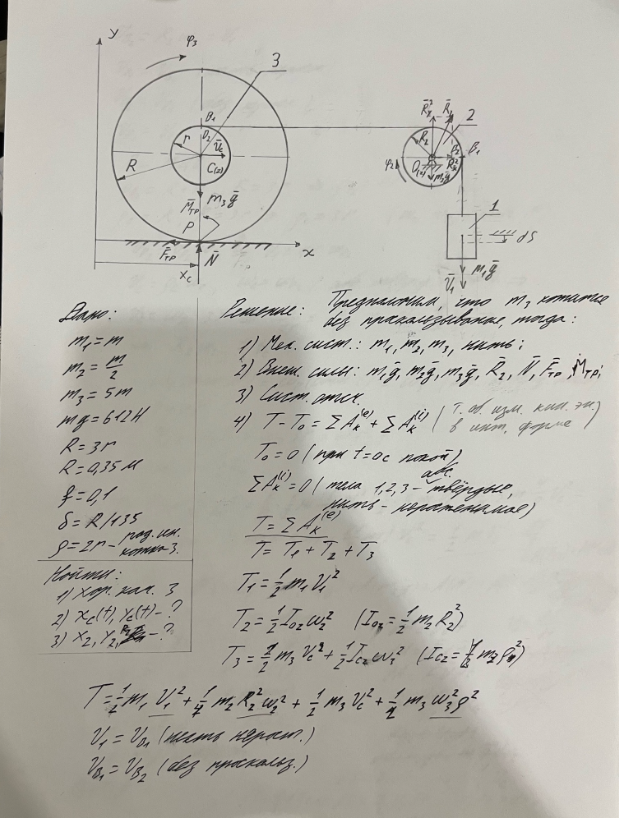 y
φ₃
3
D₁
D₂
r
V̄c
R
C(z)
m₃ḡ
M̄тр
P
F̄тр
N̄
x
xc
2
R₂
φ₂
B₂
B₁
1
dS
m₁ḡ
V̄₁
Дано:
m₁ = m
m₂ = m/2
m₃ = 5m
mg = 612 Н
R = 3r
R = 0,35 м
f = 0,1
δ = R/135
ρ = 2r – рад. ин. катка 3.
Найти:
1) хар. кач. 3
2) xc(t), yc(t) – ?
3) X₂, Y₂, – ?
Решение: Предположим, что m₃ катится
без проскальзывания, тогда:
1) Мех. сист.: m₁, m₂, m₃, нить;
2) Внеш. силы: m₁ḡ, m₂ḡ, m₃ḡ, R̄₂, N̄, F̄тр, M̄тр;
3) Сист. отсч.
4) T – T₀ = ΣAₖ⁽ᵉ⁾ + ΣAₖ⁽ⁱ⁾ (т. об. изм. кин. эн. в инт. форме)
T₀ = 0 (при t = 0 с покой)
ΣAₖ⁽ⁱ⁾ = 0 (тела 1, 2, 3 – абс. твёрдые,
нить – нерастяжимая)
T = ΣAₖ⁽ᵉ⁾
T = T₁ + T₂ + T₃
T₁ = ½ m₁V₁²
T₂ = ½ I₀₂ω₂² (I₀₂ = ½ m₂R₂²)
T₃ = ½ m₃Vc² + ½ Icz ω₃² (Icz = m₃ρ²)
T = ½ m₁V₁² + ¼ m₂R₂²ω₂² + ½ m₃Vc² + ½ m₃ω₃²ρ²
V₁ = V_B₁ (нить нераст.)
V_B₁ = V_B₂ (без проскольз.)